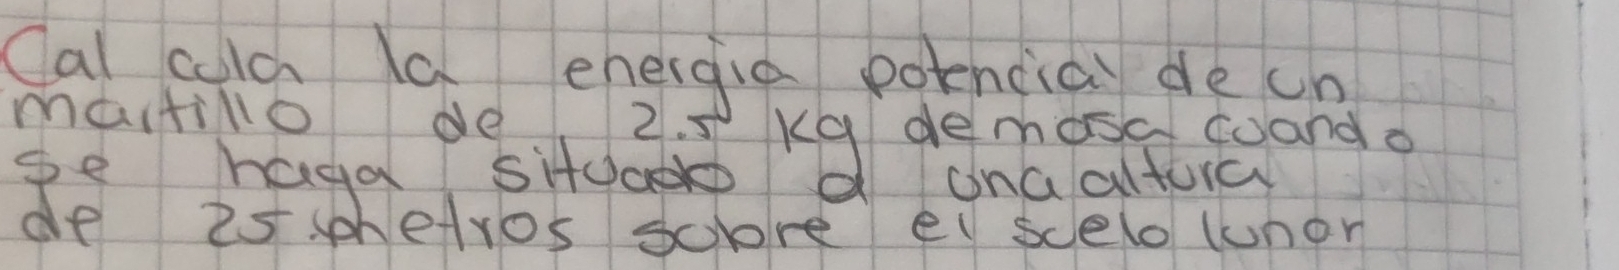 Cal cula la energia potencial de un
martillo de 2.5 kg de masa cuando
se haga situado a una altura
de 25 metros sobre el suelo lunar